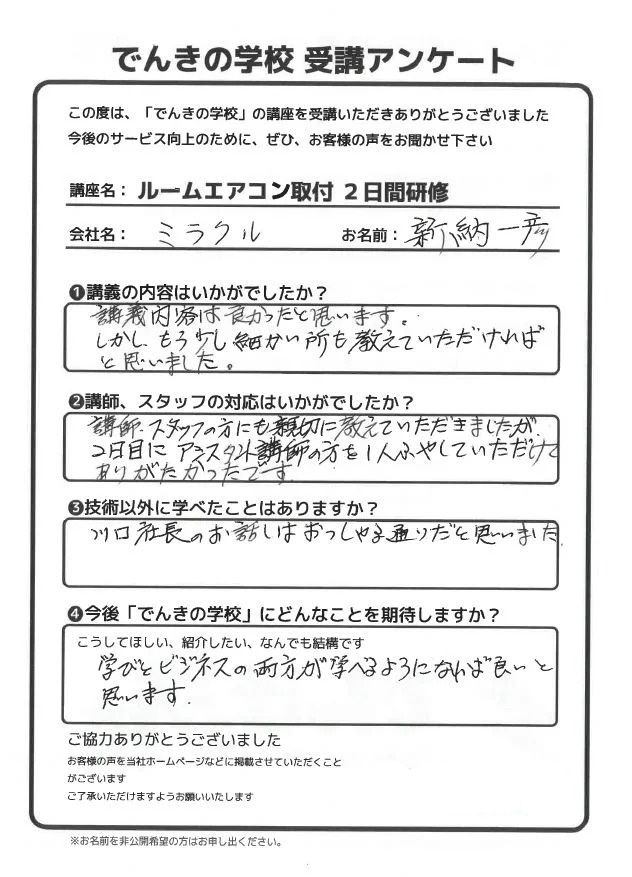 でんきの学校 受講アンケート
この度は、「でんきの学校」の講座を受講いただきありがとうございました
今後のサービス向上のために、ぜひ、お客様の声をお聞かせ下さい
講座名： ルームエアコン取付 ２日間研修
会社名： ミラクル お名前： 新納一彦
❶講義の内容はいかがでしたか？
講義内容は良かったと思います。
しかし、もう少し細かい所も教えていただければ
と思いました。
❷講師、スタッフの対応はいかがでしたか？
講師、スタッフの方にも親切に教えていただきましたが、
2日目にアシスタント講師の方を1人ふやしていただけて
ありがたかったです。
❸技術以外に学べたことはありますか？
川口社長のお話しはおっしゃる通りだと思いました。
❹今後「でんきの学校」にどんなことを期待しますか？
こうしてほしい、紹介したい、なんでも結構です
学びとビジネスの両方が学べるようになれば良いと
思います。
ご協力ありがとうございました
お客様の声を当社ホームページなどに掲載させていただくこと
がございます
ご了承いただけますようお願いいたします
※お名前を非公開希望の方はお申し出ください。